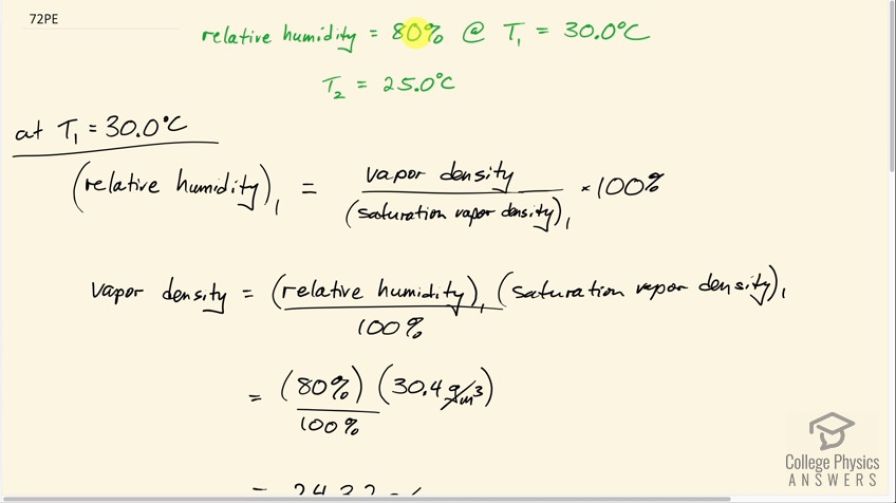 72PE
relative humidity = 80% @ T₁ = 30.0°C
T₂ = 25.0°C
at T₁ = 30.0°C
(relative humidity)₁ = vapor density / (saturation vapor density)₁ × 100%
vapor density = (relative humidity)₁ (saturation vapor density)₁
100%
= (80%) (30.4 g/m³)
100%
College Physics
ANSWERS